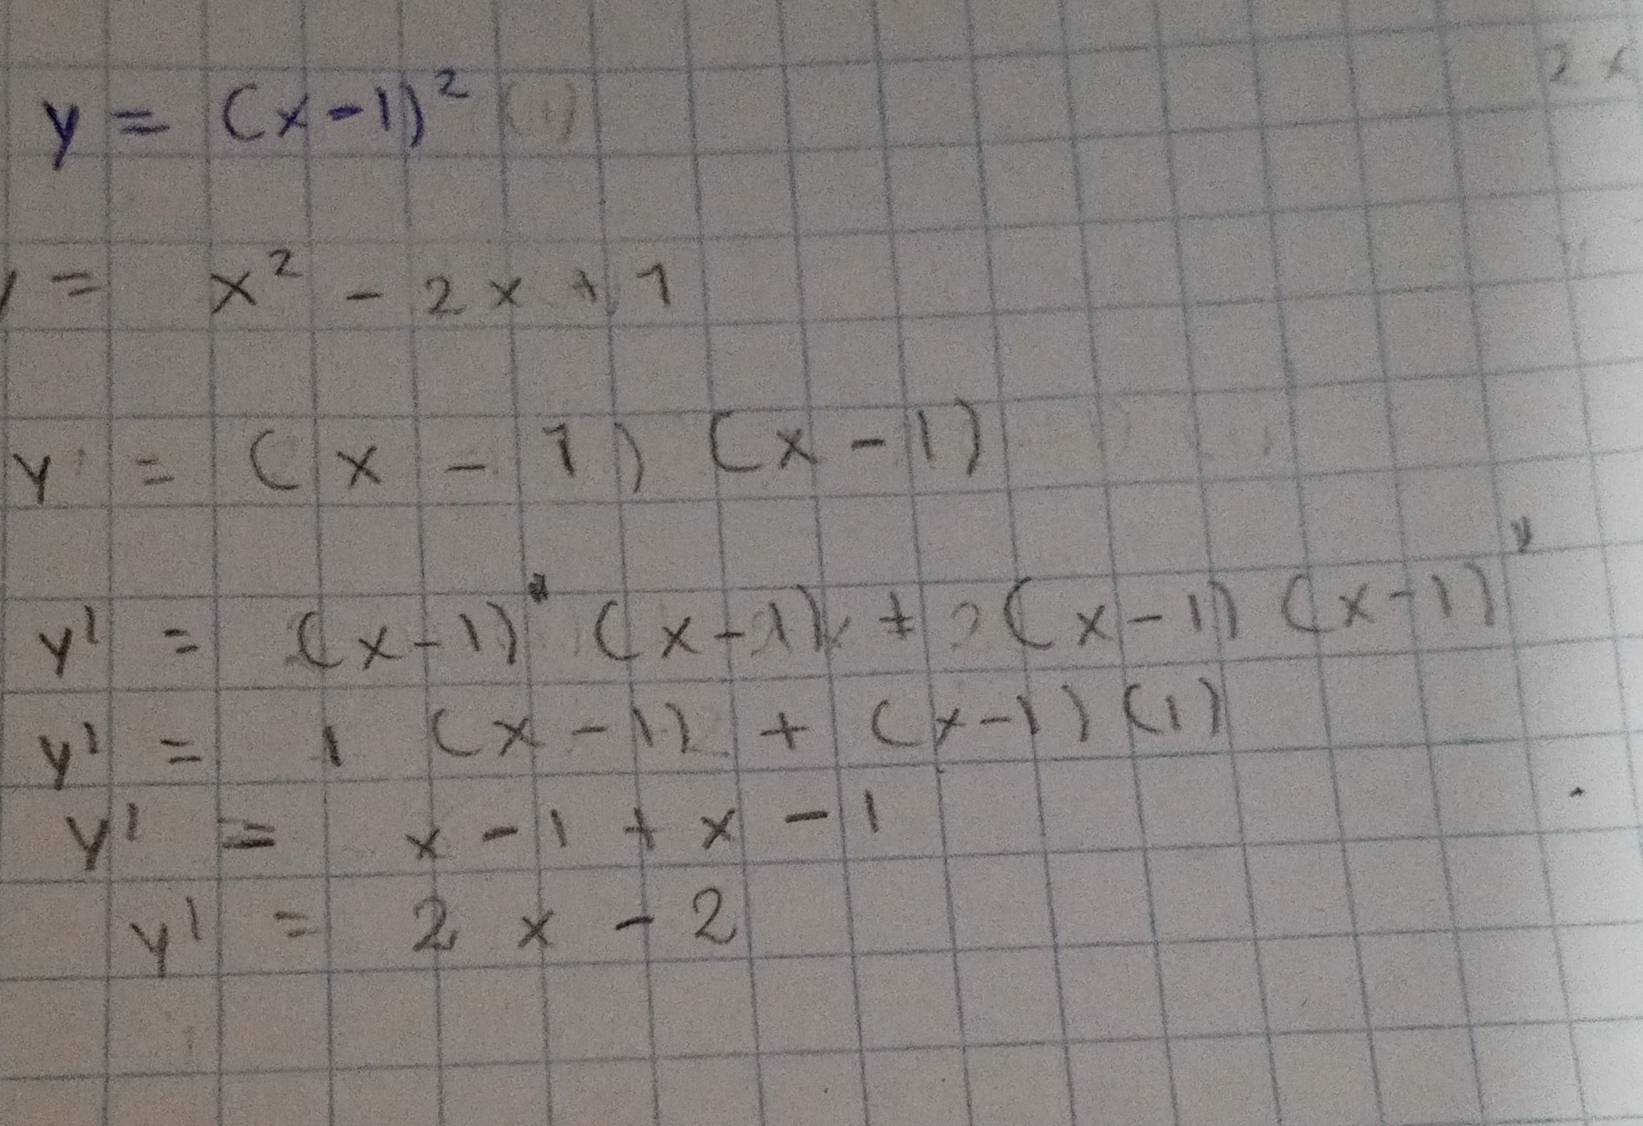 y = (x-1)²
y = x² - 2x + 1
y = (x - 1) (x - 1)
y' = (x-1)' (x-1) + (x-1) (x-1)'
y' = 1 (x-1) + (x-1) (1)
y' = x - 1 + x - 1
y' = 2x - 2